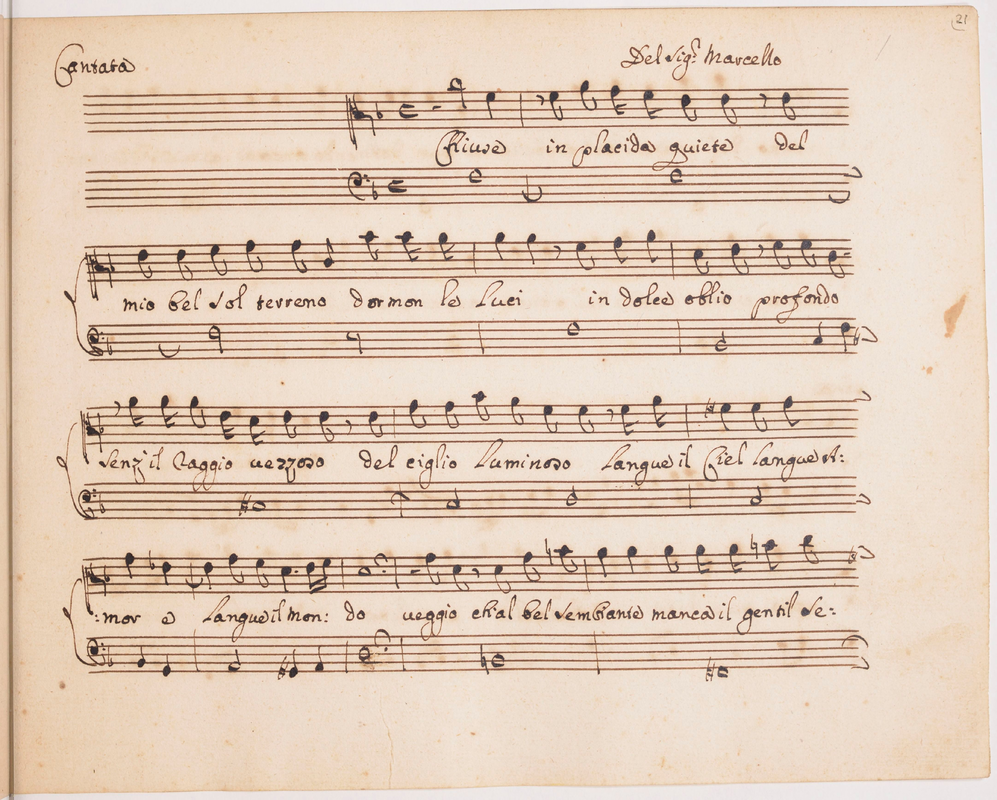 21
Cantata Del Sig.r Marcello
Chiuse in placida quiete del
mio bel sol terreno dormon le luci in dolce oblio profondo
senz'il raggio vezzoso del ciglio luminoso langue il Ciel langue A:
:mor e langue il mon: do veggio ch'al bel sembiante manca il gentil se: